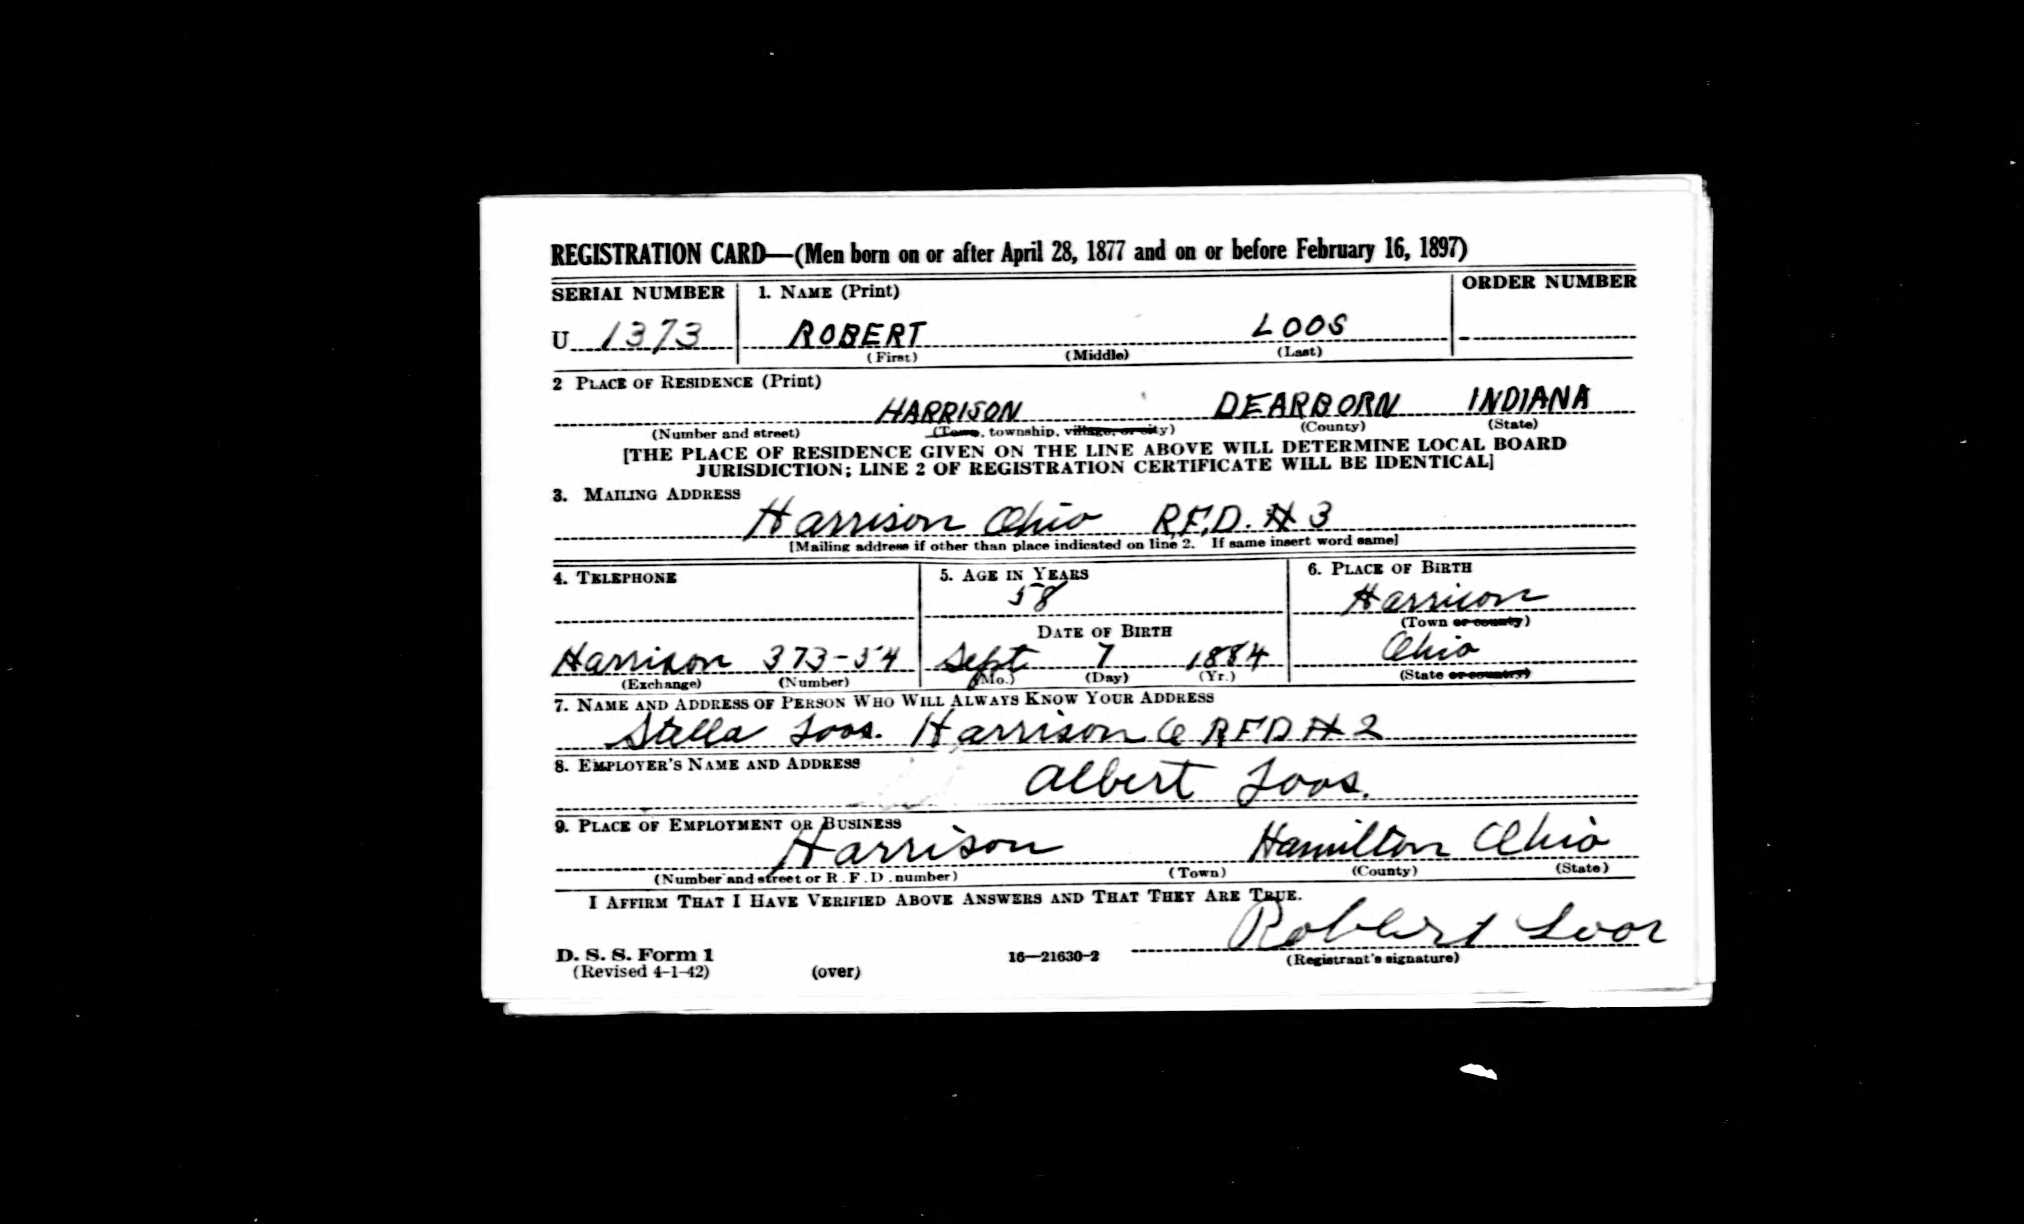 REGISTRATION CARD—(Men born on or after April 28, 1877 and on or before February 16, 1897)
SERIAL NUMBER 1. NAME (Print) ORDER NUMBER
U 1373 ROBERT LOOS
(First) (Middle) (Last)
2 PLACE OF RESIDENCE (Print)
HARRISON DEARBORN INDIANA
(Number and street) (Town, township, village, or city) (County) (State)
[THE PLACE OF RESIDENCE GIVEN ON THE LINE ABOVE WILL DETERMINE LOCAL BOARD
JURISDICTION; LINE 2 OF REGISTRATION CERTIFICATE WILL BE IDENTICAL]
3. MAILING ADDRESS
Harrison Ohio R.F.D. # 3
[Mailing address if other than place indicated on line 2. If same insert word same]
4. TELEPHONE 5. AGE IN YEARS 6. PLACE OF BIRTH
58 Harrison
DATE OF BIRTH (Town or county)
Harrison 373-54 Sept 7 1884 Ohio
(Exchange) (Number) (Mo.) (Day) (Yr.) (State or country)
7. NAME AND ADDRESS OF PERSON WHO WILL ALWAYS KNOW YOUR ADDRESS
Stella Loos. Harrison O RFD # 2
8. EMPLOYER'S NAME AND ADDRESS
Albert Loos.
9. PLACE OF EMPLOYMENT OR BUSINESS
Harrison Hamilton Ohio
(Number and street or R. F. D. number) (Town) (County) (State)
I AFFIRM THAT I HAVE VERIFIED ABOVE ANSWERS AND THAT THEY ARE TRUE.
Robert Loos
D. S. S. Form 1 16—21630-2 (Registrant's signature)
(Revised 4-1-42) (over)